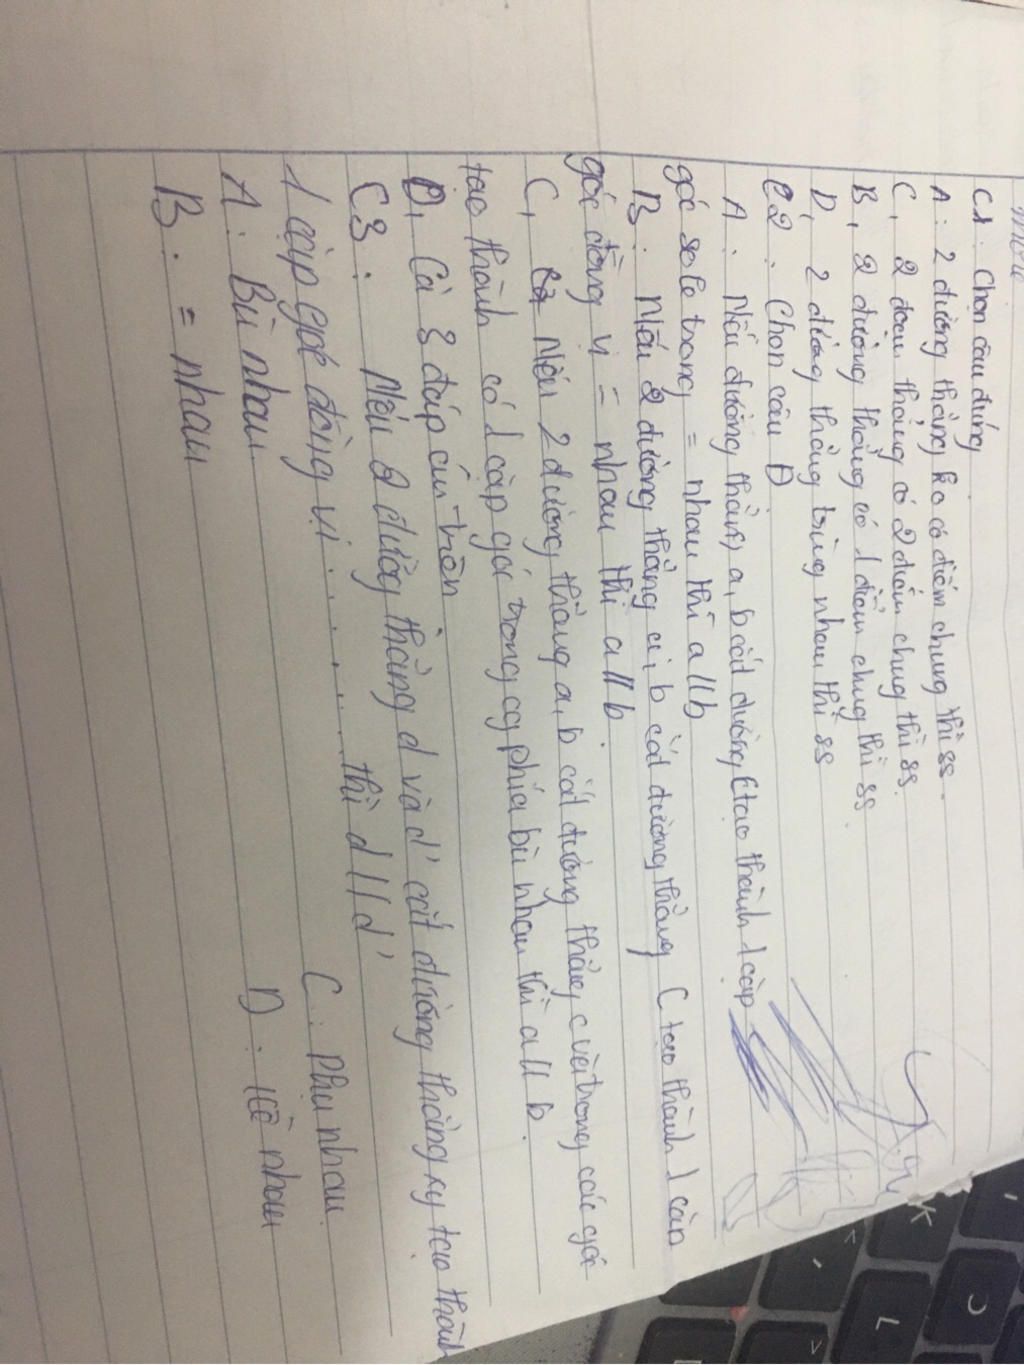 C1: Chọn câu đúng
A: 2 đường thẳng ko có điểm chung thì ss.
C, 2 đoạn thẳng có 2 điểm chung thì ss.
B, 2 đường thẳng có 1 điểm chung thì ss.
D, 2 đường thẳng trùng nhau thì ss
C2: Chọn câu Đ
A: Nếu đường thẳng a, b cắt đường C tạo thành 1 cặp
góc so le trong = nhau thì a//b
B: Nếu 2 đường thẳng a, b cắt đường thẳng C tạo thành 1 cặp
góc đồng vị = nhau thì a//b.
C, Nếu 2 đường thẳng a, b cắt đường thẳng c và trong các góc
tạo thành có 1 cặp góc trong cg phía bù nhau thì a//b.
D, Cả 3 đáp án trên.
C3: Nếu 2 đường thẳng d và d' cắt đường thẳng xy tạo thành
1 cặp góc đồng vị ........ thì d//d'
A: Bù nhau
C: Phụ nhau.
B: = nhau
D: Kề nhau